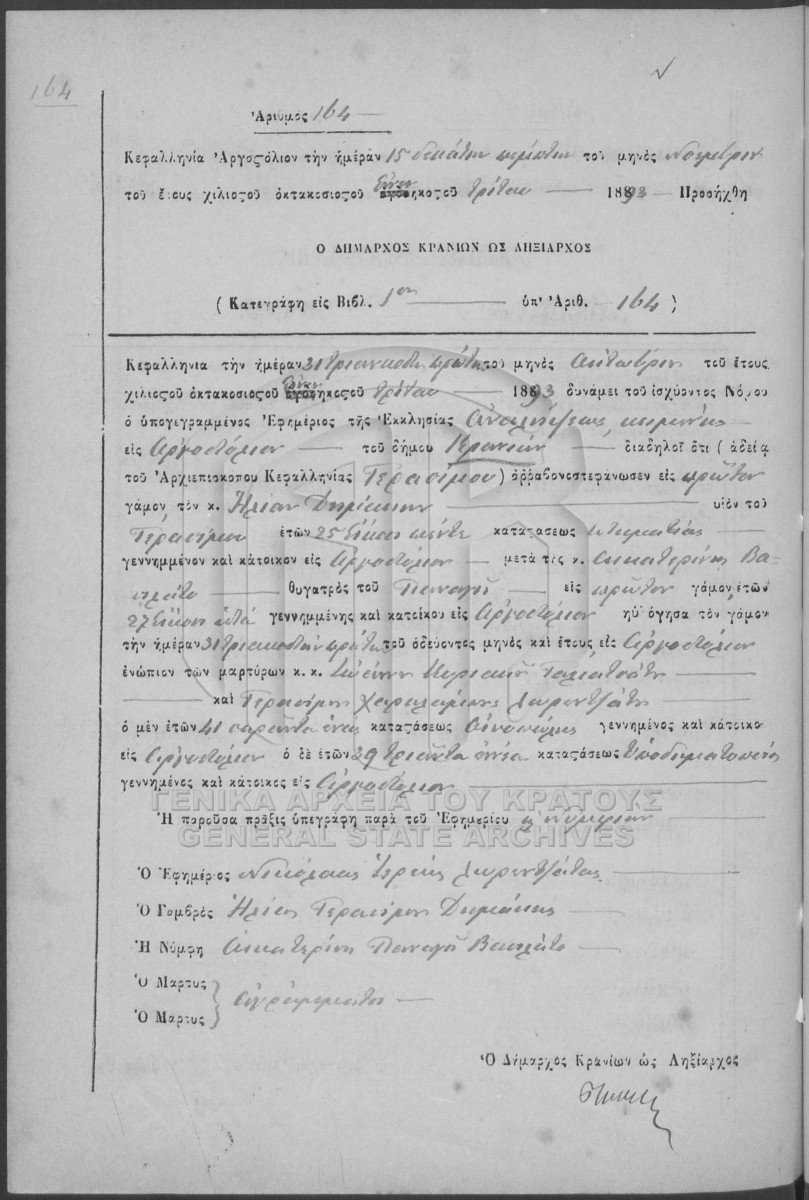 164
Ἀριθμος 164
Κεφαλληνία Ἀργοςόλιον τὴν ἡμέραν 15 δεκάτην πέμπτην τοῦ μηνὸς Νοεμβρίου
τοῦ ἔτους χιλιοςοῦ ὀκτακοσιοςοῦ ἐνενηκοςοῦ τρίτου 1893 Προσήχθη
Ο ΔΗΜΑΡΧΟΣ ΚΡΑΝΙΩΝ ΩΣ ΛΗΞΙΑΡΧΟΣ
( Κατεγράφη εἰς Βιβλ. 1ον ὑπ' Ἀριθ. 164 )
Κεφαλληνια τὴν ἡμέραν 31 τριακοστὴν πρώτην τοῦ μηνὸς Ὀκτωβρίου τοῦ ἔτους
χιλιοςοῦ ὀκτακοσιοςοῦ ἐνενηκοςοῦ τρίτου 1893 δυνάμει τοῦ ἰσχύοντος Νόμου
ὁ ὑπογεγραμμένος Ἐφημέριος τῆς Ἐκκλησίας Ἀναλήψεως κειμένης
εἰς Ἀργοστόλιον τοῦ δήμου Κρανιών διαδηλοῖ ὅτι ( ἀδείᾳ
τοῦ Ἀρχιεπισκοπου Κεφαλληνίας Γερασίμου ) ὀῤῥαβονοστεφάνωσεν εἰς πρῶτον
γάμον τὸν κ. Ἠλίαν υἱὸν τοῦ
Γερασίμου ἐτῶν 25 εἴκοσι πέντε καταςάσεως
γεννημμένον καὶ κάτοικον εἰς Ἀργοστόλιον μετὰ της κ. Αἰκατερίνης Βα-
θυγατρὸς τοῦ Παναγῆ εἰς πρῶτον γάμον ἐτῶν
27 εἴκοσι ἑπτά γεννημμένης καὶ κατοίκου εἰς Ἀργοστόλιον ηὐλόγησα τὸν γάμον
τὴν ἡμέραν 31 τριακοστὴν πρώτην τοῦ ὁδεύοντος μηνὸς καὶ ἔτους εἰς Ἀργοστόλιον
ἐνώπιον τῶν μαρτύρων κ. κ. Ἰωάννου
καὶ Γερασίμου Χαραλάμπους Λωρεντζάτου
ὁ μὲν ἐτῶν 41 σαράντα ἑνός καταςάσεως Οἰνοπώλης γεννημένος καὶ κάτοικο
εἰς Ἀργοστόλιον ὁ δὲ ἐτῶν 39 τριάντα ἐννέα καταςάσεως Ὑποδηματοποιός
γεννημένος καὶ κάτοικος εἰς Ἀργοστόλιον
ΓΕΝΙΚΑ ΑΡΧΕΙΑ ΤΟΥ ΚΡΑΤΟΥΣ
Ἡ παροῦσα πρᾶξις ὑπεγράφη παρὰ τοῦ Ἐφημερίου
GENERAL STATE ARCHIVES
Ὁ Ἐφημέριος Νικόλαος Ἱερεύς Λωρεντζάτος
Ὁ Γαμβρὸς Ἠλίας Γερασίμου
Ἡ Νύμφη Αἰκατερίνη Παναγῆ
Ὁ Μαρτυς
Ἀγράμματοι
Ὁ Μαρτυς
Ὁ Δήμαρχος Κρανίων ὡς Ληξίαρχος